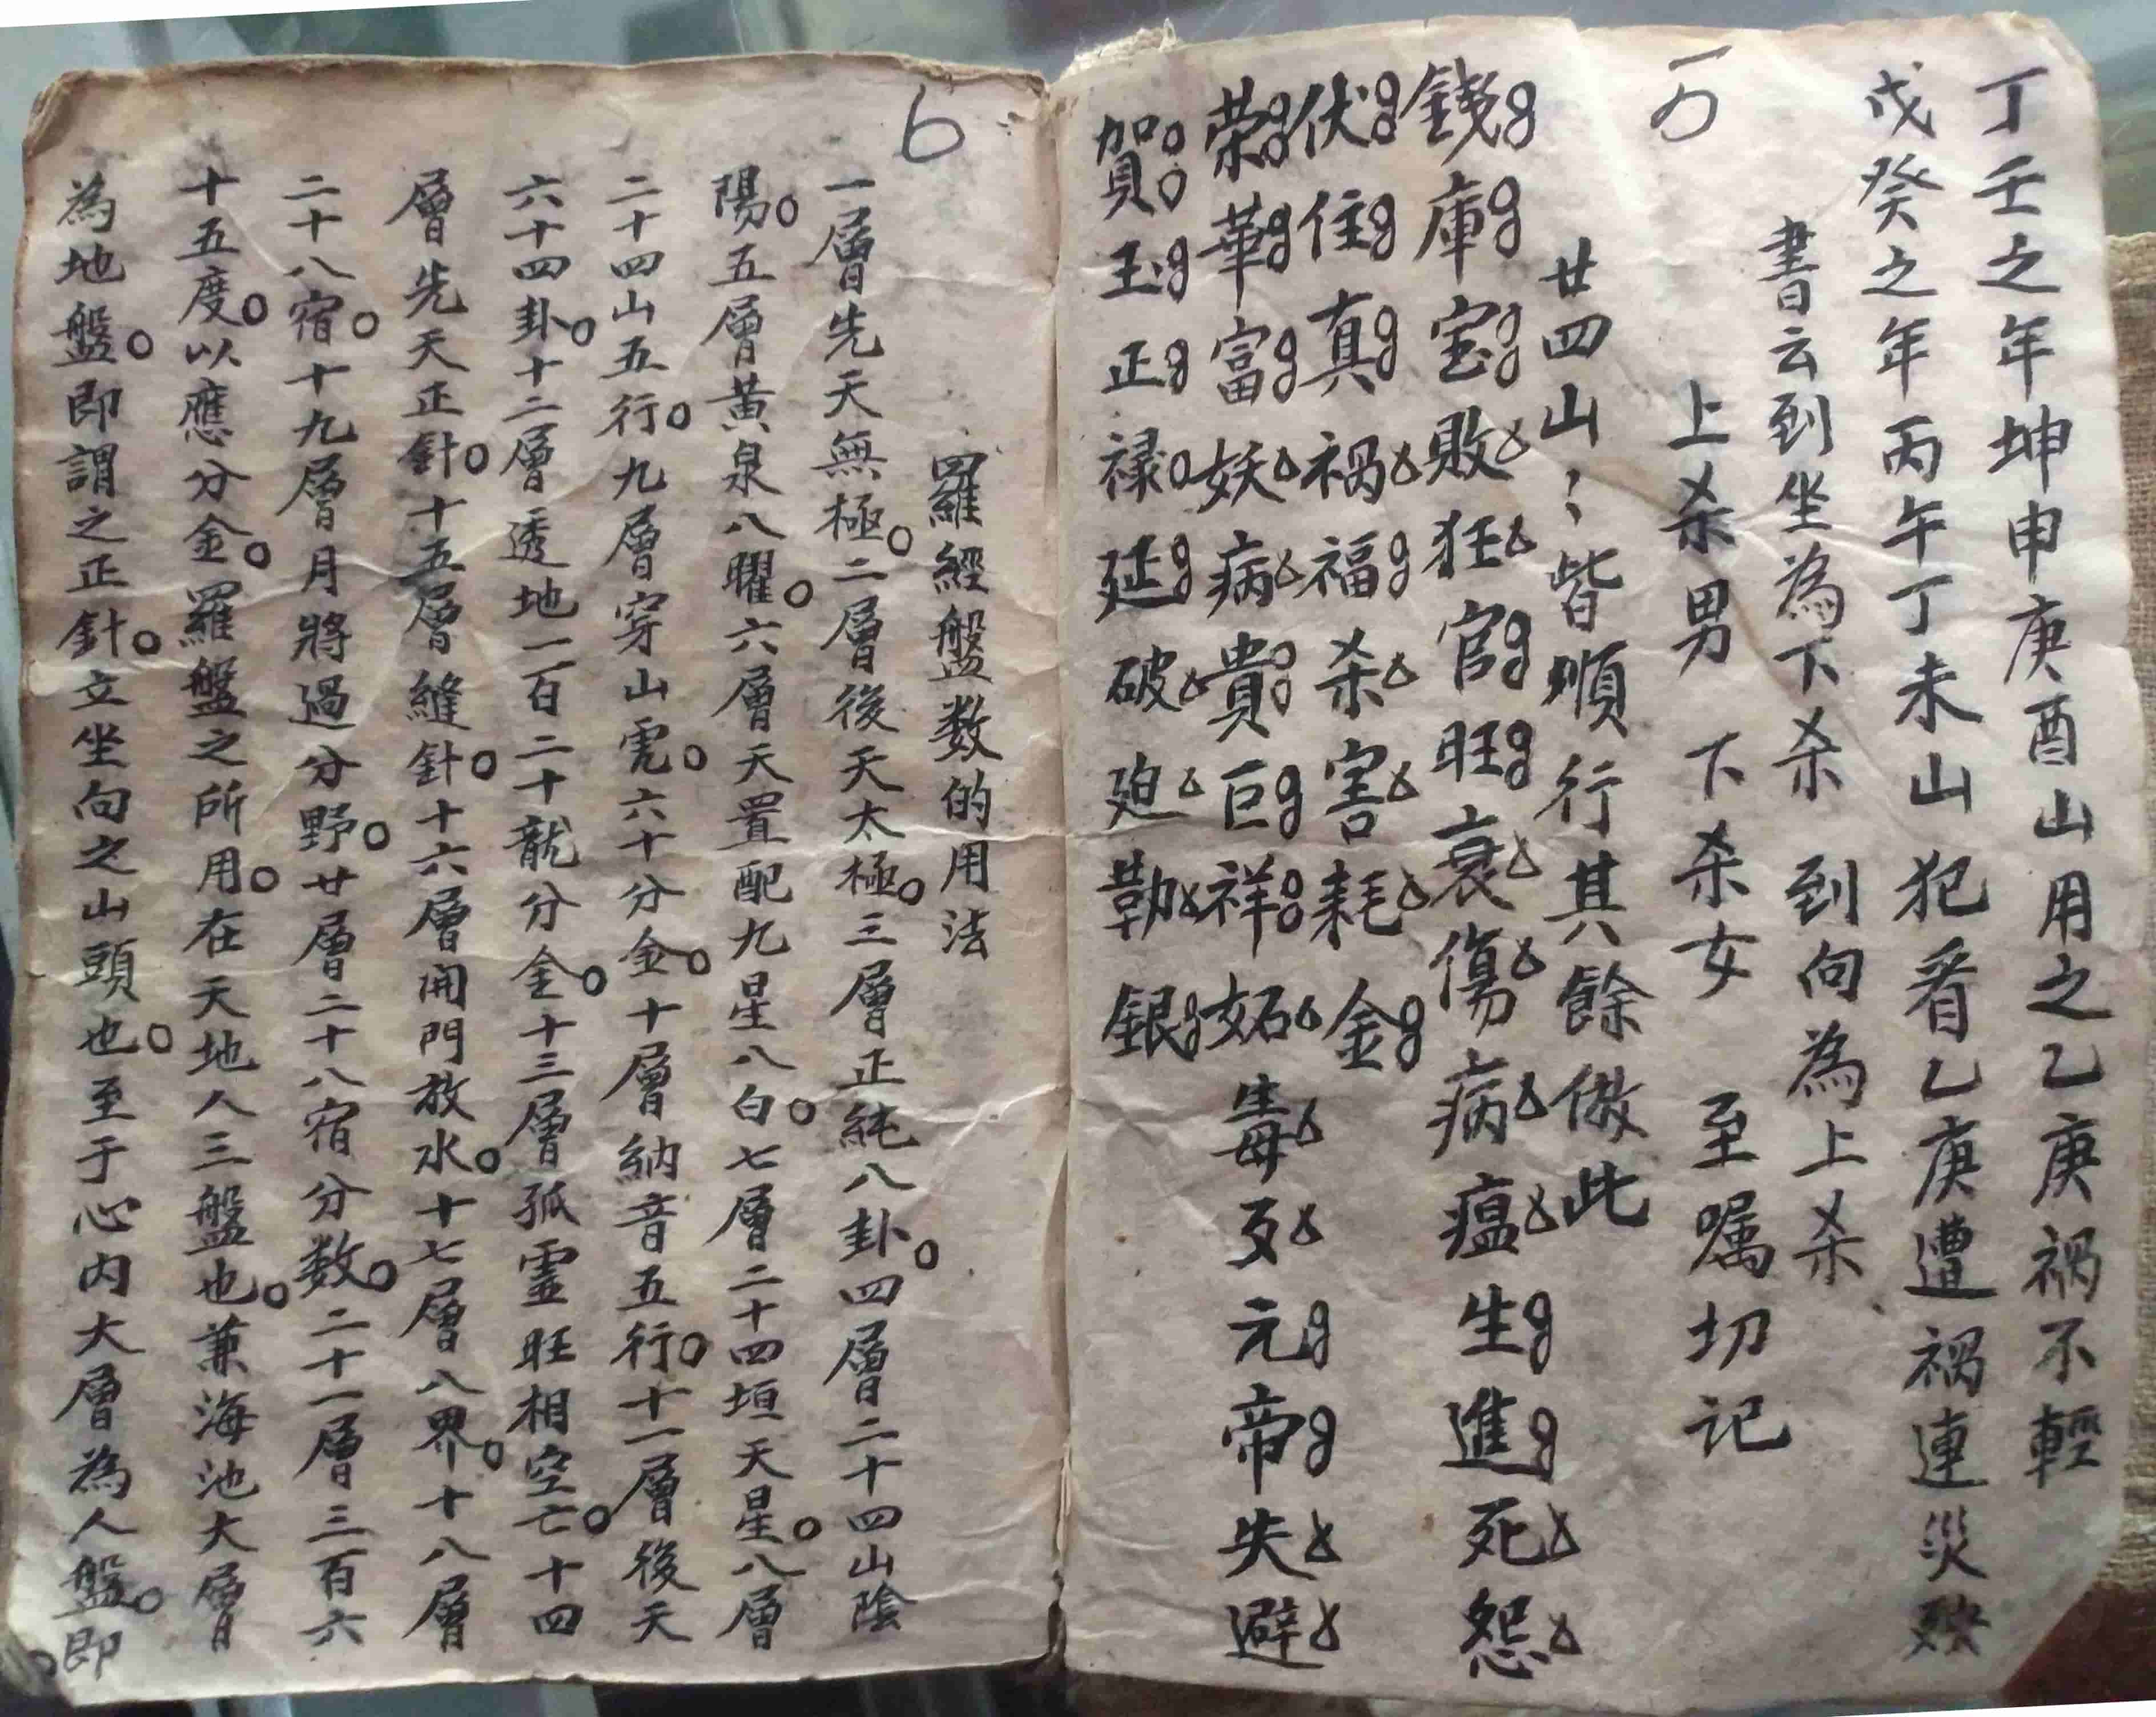 丁壬之年坤申庚酉山用之乙庚禍不輕
戊癸之年丙午丁未山犯着乙庚遭禍連災殃
書云到坐為下杀 到向為上杀
上杀男 下杀女 至嘱切记
廿四山〻皆順行其餘倣此
錢庫宝敗狂官旺衰傷病瘟生進死怨
伏住真禍福杀害耗金
荣華富妖病貴巨祥妬毒歹元帝失避
賀玉正禄延破廹勒銀
6
羅經盤数的用法
一層先天無極。二層後天太極。三層正純八卦。四層二十四山陰
陽。五層黃泉八曜。六層天置配九星八白。七層二十四垣天星。八層
二十四山五行。九層穿山虎。六十分金。十層納音五行。十一層後天
六十四卦。十二層透地一百二十龍分金。十三層孤虛旺相空亡。十四
層先天正針。十五層縫針。十六層開門放水。十七層八界。十八層
二十八宿。十九層月將過分野。廿層二十八宿分数。二十一層三百六
十五度。以應分金。羅盤之所用。在天地人三盤也。兼海池大層
為地盤。即謂之正針。立坐向之山頭也。至于心内大層為人盤。即